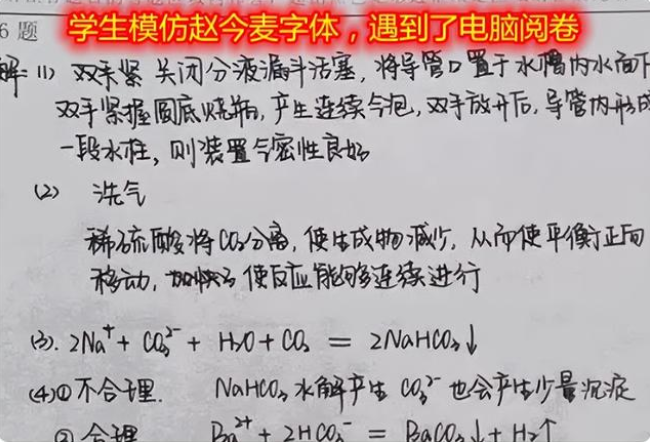 学生模仿赵今麦字体，遇到了电脑阅卷
6 题
解: (1) 双手紧 关闭分液漏斗活塞，将导管口置于水槽内水面下
双手紧握圆底烧瓶，产生连续气泡，双手放开后，导管内形成
一段水柱，则装置气密性良好
(2) 洗气
稀硫酸将CO₂分离，使生成物减少，从而使平衡正向
移动，加快了 使反应能够连续进行
(3). 2Na⁺ + CO₃²⁻ + H₂O + CO₂ = 2NaHCO₃↓
(4)① 不合理. NaHCO₃ 水解产生 CO₃²⁻ 也会产生少量沉淀
② 合理 Ba²⁺ + 2HCO₃⁻ = BaCO₃↓ + H₂↑